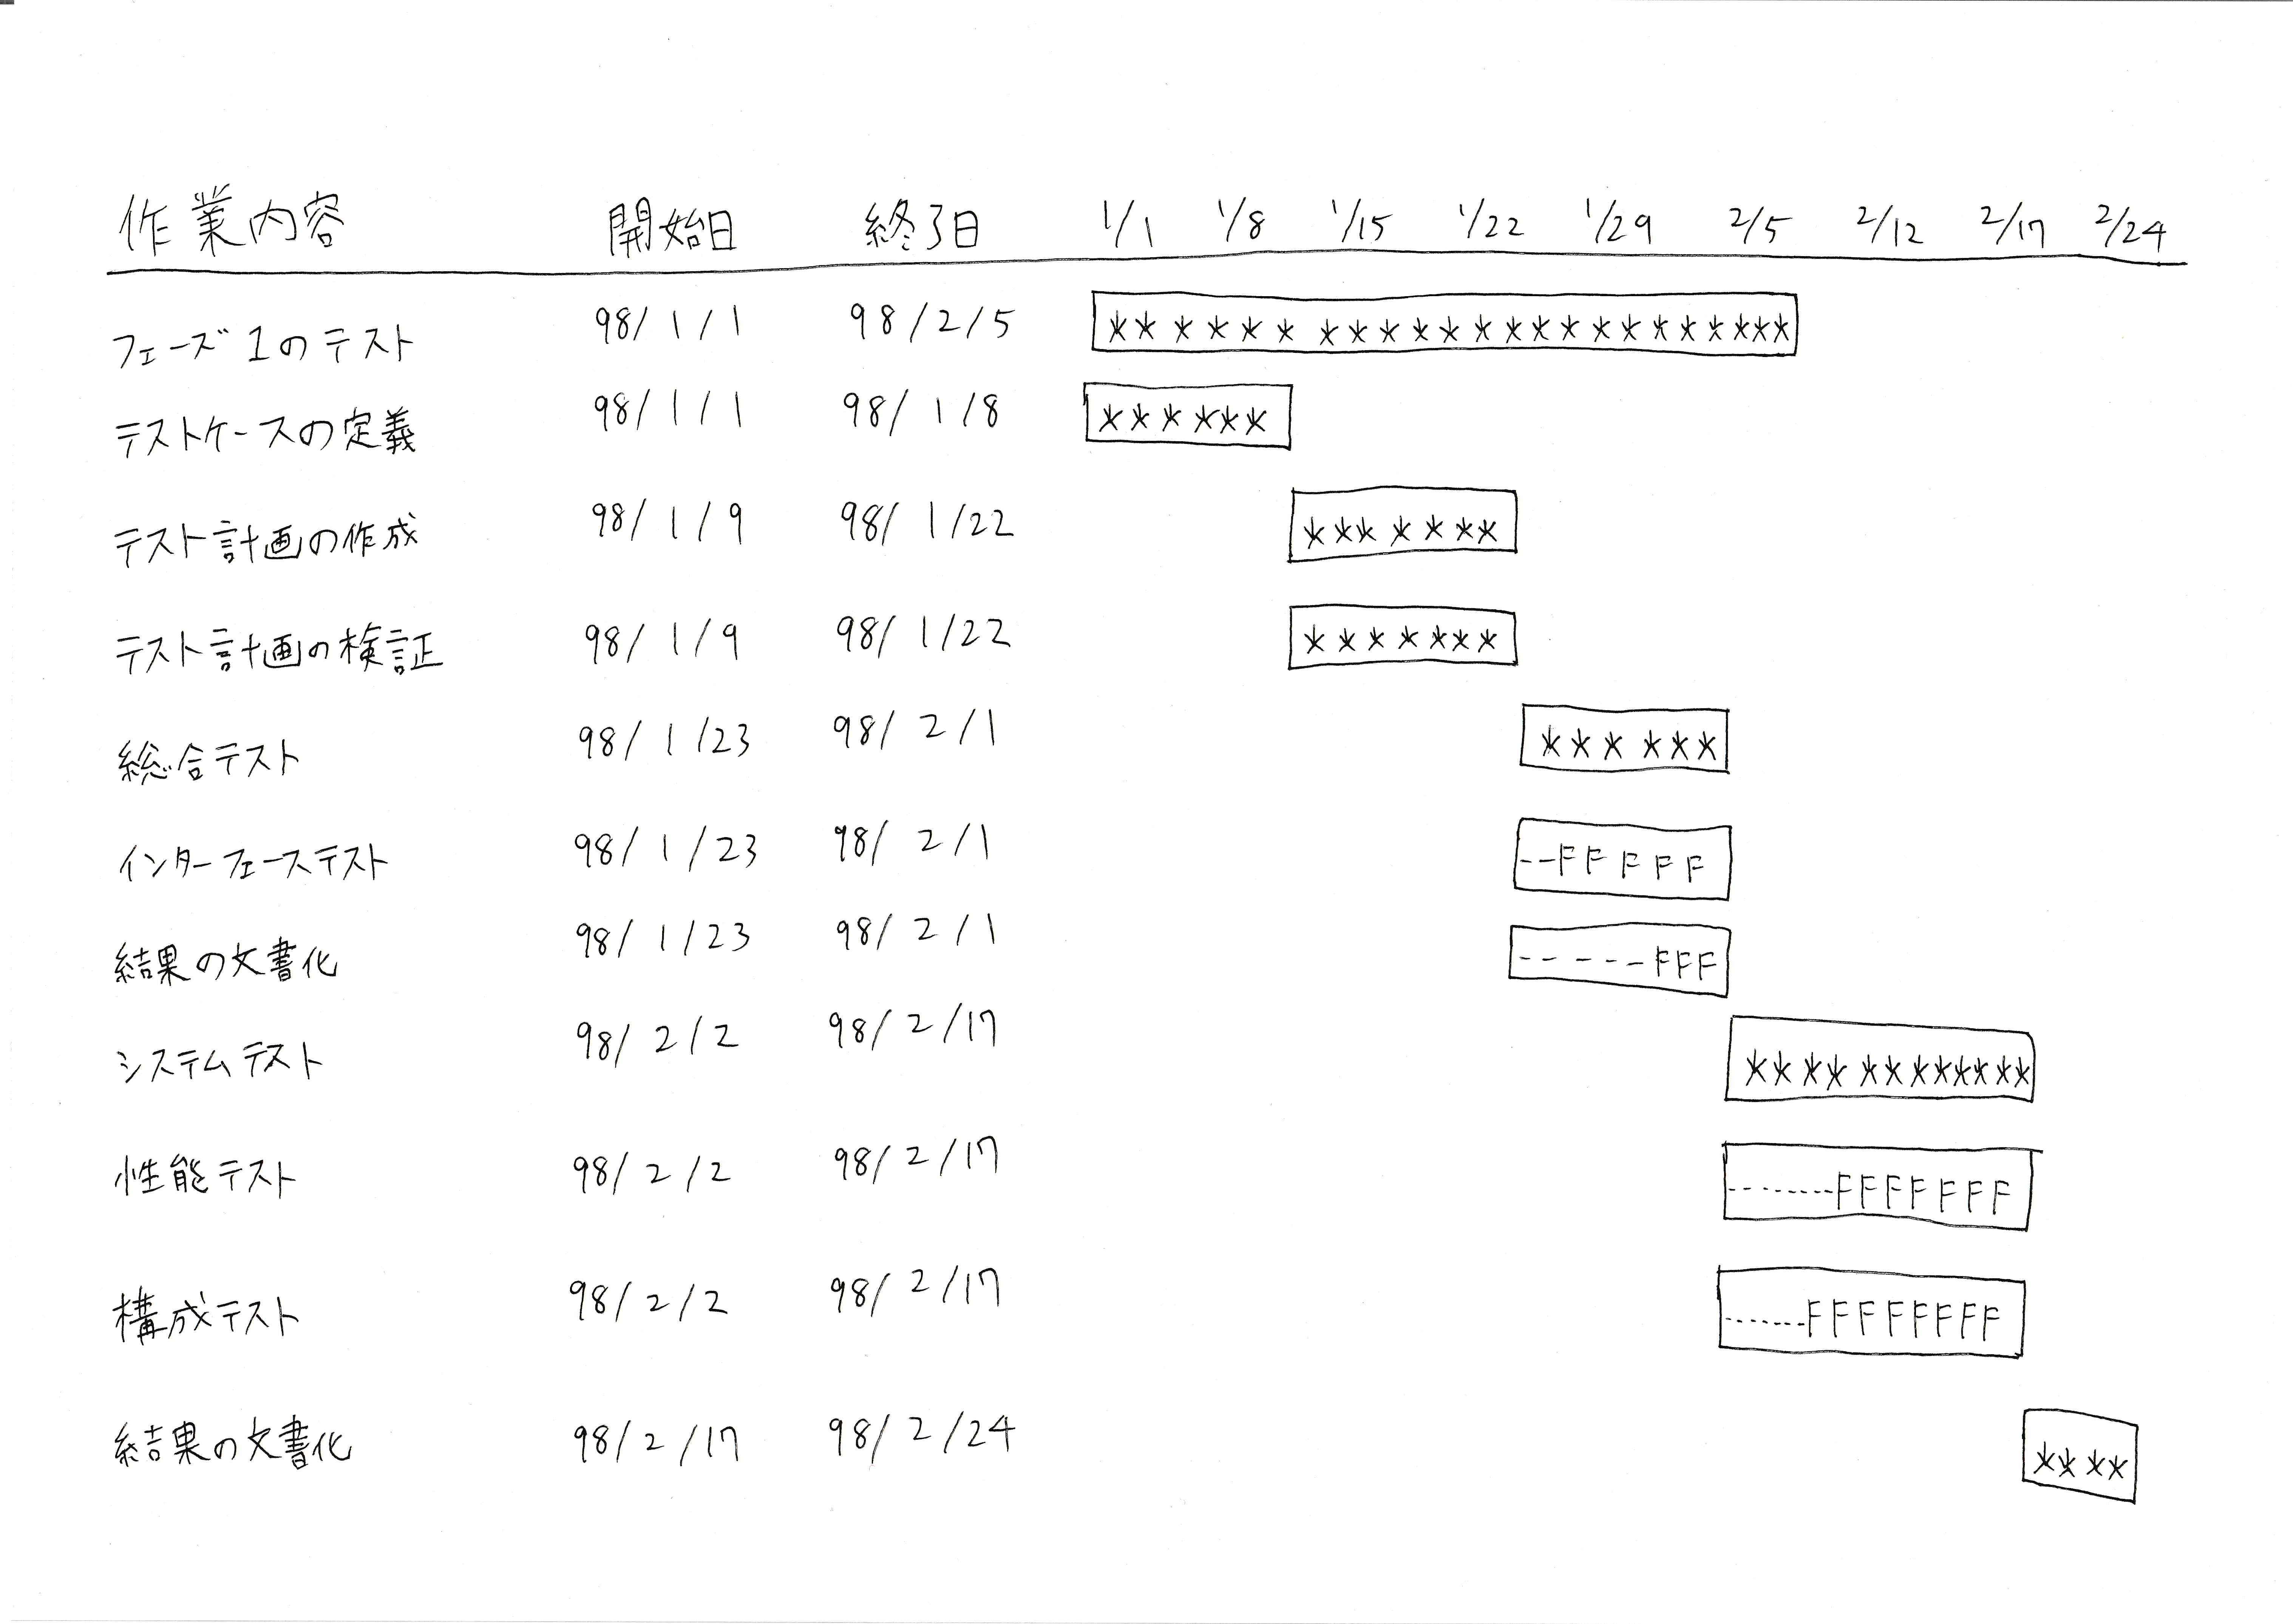 作業内容 開始日 終了日 1/1 1/8 1/15 1/22 1/29 2/5 2/12 2/17 2/24
フェーズ1のテスト 98/1/1 98/2/5 **********************
テストケースの定義 98/1/1 98/1/8 ******
テスト計画の作成 98/1/9 98/1/22 *******
テスト計画の検証 98/1/9 98/1/22 *******
総合テスト 98/1/23 98/2/1 ******
インターフェーステスト 98/1/23 98/2/1 --FFFFF
結果の文書化 98/1/23 98/2/1 -----FFF
システムテスト 98/2/2 98/2/17 ***********
性能テスト 98/2/2 98/2/17 --------FFFFFFF
構成テスト 98/2/2 98/2/17 -------FFFFFFFF
結果の文書化 98/2/17 98/2/24 ****